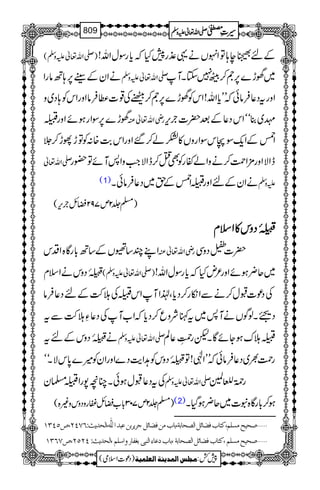 سیرتِ مصطفیٰ صلی اللہ تعالیٰ علیہ وسلم 809
کے لئے بھیجنا چاہا تو انہوں نے یہی عذر پیش کیا کہ یارسول اللہ! (صلی اللہ تعالیٰ علیہ وسلم)
میں گھوڑے پر جم کر بیٹھ نہیں سکتا۔ آپ صلی اللہ تعالیٰ علیہ وسلم نے ان کے سینے پر ہاتھ مارا
اور یہ دعا فرمائی کہ ”یا اللہ! اس کو گھوڑے پر جم کر بیٹھنے کی قوت عطا فرما اور اس کو ہادی و
مہدی بنا“ اس دعا کے بعد حضرت جریر رضی اللہ تعالیٰ عنہ گھوڑے پر سوار ہوئے اور قبیلہ
احمس کے ایک سو پچاس سواروں کا لشکر لے کر گئے اور اس بت خانہ کو توڑ پھوڑ کر جلا
ڈالا اور مزاحمت کرنے والے کفار کو بھی قتل کر ڈالا جب واپس آئے تو حضور صلی اللہ تعالیٰ
علیہ وسلم نے ان کے لئے اور قبیلہ احمس کے حق میں دعا فرمائی۔ (1)
(مسلم جلد ۲ ص ۲۹۷ فضائل جریر)
قبیلۂ دوس کا اسلام
حضرت طفیل دوسی رضی اللہ تعالیٰ عنہ اپنے چند ساتھیوں کے ساتھ بارگاہ اقدس
میں حاضر ہوئے اور عرض کیا کہ یارسول اللہ! (صلی اللہ تعالیٰ علیہ وسلم) قبیلۂ دوس نے اسلام
کی دعوت قبول کرنے سے انکار کر دیا، لہٰذا آپ اس قبیلہ کی ہلاکت کے لئے دعا فرما
دیجئے۔ لوگوں نے آپس میں یہ کہنا شروع کر دیا کہ اب آپ کی دعاءِ ہلاکت سے یہ
قبیلہ ہلاک ہو جائے گا۔ لیکن رحمتِ عالم صلی اللہ تعالیٰ علیہ وسلم نے قبیلۂ دوس کے لئے یہ
رحمت بھری دعا فرمائی کہ ”الٰہی! تو قبیلۂ دوس کو ہدایت دے اور ان کو میرے پاس لا۔“
رحمۃ للعالمین صلی اللہ تعالیٰ علیہ وسلم کی یہ دعا قبول ہوئی۔ چنانچہ پورا قبیلہ مسلمان
ہو کر بارگاہ نبوت میں حاضر ہو گیا۔ (2) (مسلم جلد ۲ ص ۳۰۷ باب فضائل غفار و دوس وغیرہ)
صحیح مسلم، کتاب فضائل الصحابۃ، باب من فضائل جریر بن عبد اللہ، الحدیث: ۲۴۷۶، ص ۱۳۴۵
صحیح مسلم، کتاب فضائل الصحابۃ، باب دعاء النبی لغفار واسلم، الحدیث: ۲۵۲۴، ص ۱۳۶۷
پیش کش: مجلس المدینۃ العلمیۃ (دعوت اسلامی)